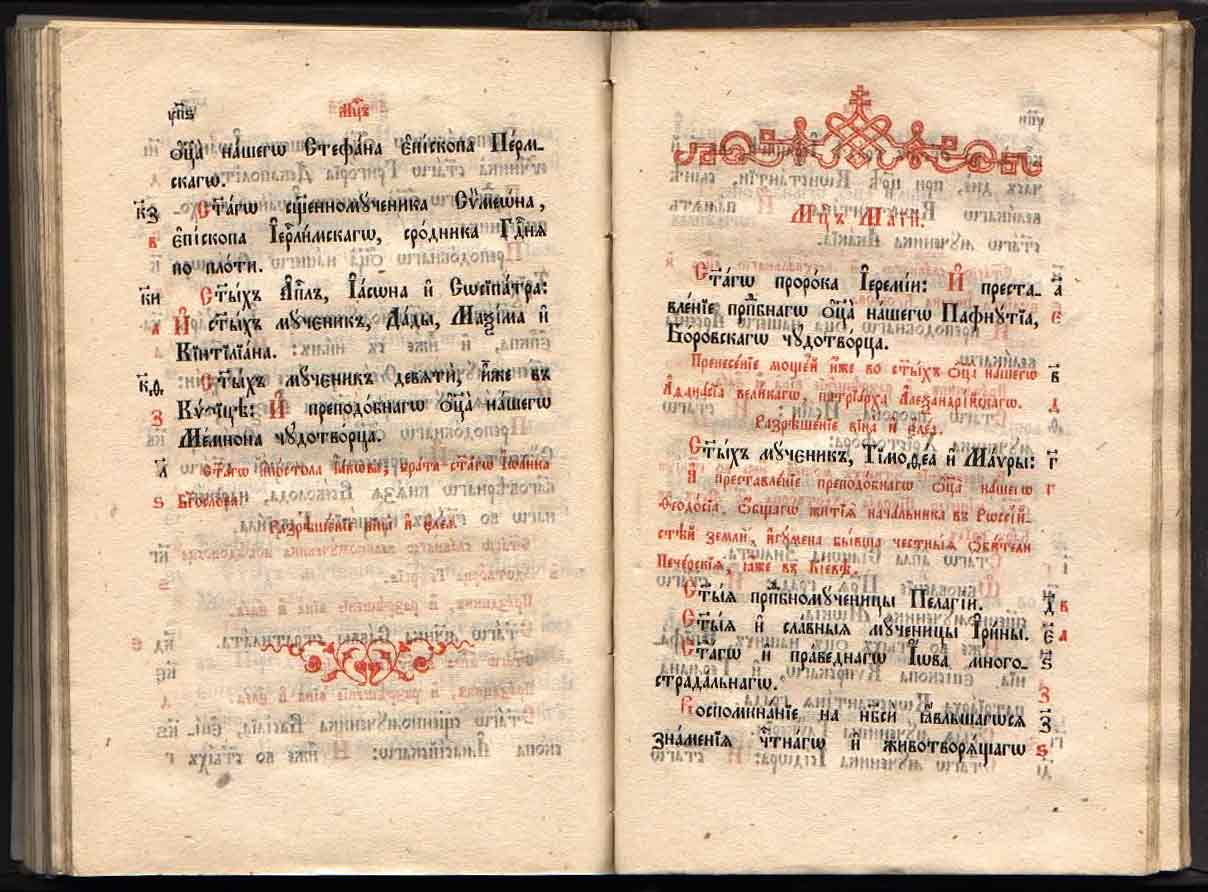 Мц҃ъ
ѻ҆ц҃а̀ на́шегѡ Стефа́на є҆пі́скопа Пе́рм_
скагѡ.
к҃з С҃та́гѡ сщ҃енномꙋ́ченика Сѷмеѡ́на,
в є҆пі́скопа І҆ер҇ли́мскагѡ, сро́дника Гдⷭ҇нѧ
по пло́ти.
к҃и С҃ты́хъ А҆пⷭ҇лъ, І҆а́сѡна и҆ Сѡсїпа́тра:
И҆ ст҃ы́хъ мꙋ́ченикъ, Да́ды, Маѯі́ма и҆
Кїнтїлїа́на.
к҃ѳ С҃ты́хъ мꙋ́ченикъ девѧти́, и҆́же въ
з Кѷзі́цѣ: И҆ преподо́бнагѡ ѻ҆ц҃а̀ на́шегѡ
Ме́мнона чꙋдотво́рца.
л҃ С҃та́гѡ а҆по́стола І҆а́кѡва, бра́та ст҃а́гѡ І҆ѡа́нна
ѕ Бг҃осло́ва:
Разрѣше́нїе вїна̀ и҆ є҆ле́а.
Мц҃ъ Ма́їй.
С҃та́гѡ проро́ка І҆еремі́и: И҆ преста_ а҃
вле́нїе прпⷣбнагѡ ѻ҆ц҃а̀ на́шегѡ Пафнꙋ́тїа, є
Бо́ровскагѡ чꙋдотво́рца.
Пренесе́нїе моще́й и҆́же во ст҃ы́хъ ѻ҆ц҃а̀ на́шегѡ в҃
А҆ѳана́сїа вели́кагѡ, патрїа́рха А҆леѯандрі́йскагѡ. д
Разрѣше́нїе вїна̀ и҆ є҆ле́а.
С҃ты́хъ мꙋ́ченикъ, Тїмоѳе́а и҆ Ма́ѵры: г҃
И҆ преставле́нїе преподо́бнагѡ ѻ҆ц҃а̀ на́шегѡ г
Ѳеодо́сїа, ѻ҆́бщагѡ житїѧ̀ нача́льника въ Рѡссі́й_
стѣй землѝ, и҆гꙋ́мена бы́вша честны́ѧ ѻ҆би́тели
Пече́рскїѧ, ꙗ҆́же въ Кі́евѣ.
С҃ты́ѧ прпⷣбномꙋ́ченицы Пелагі́и. д҃ в
С҃ты́ѧ и҆ сла́вныѧ мꙋ́ченицы І҆ри́ны. є҃ а
С҃та́гѡ и҆ пра́веднагѡ І҆́ѡва мно́го_ ѕ҃
страда́льнагѡ.
Воспомина́нїе на нб҃сѝ ꙗ҆́вльшагѡсѧ з҃
зна́менїѧ чⷭ҇тна́гѡ и҆ животворѧ́щагѡ ѕ